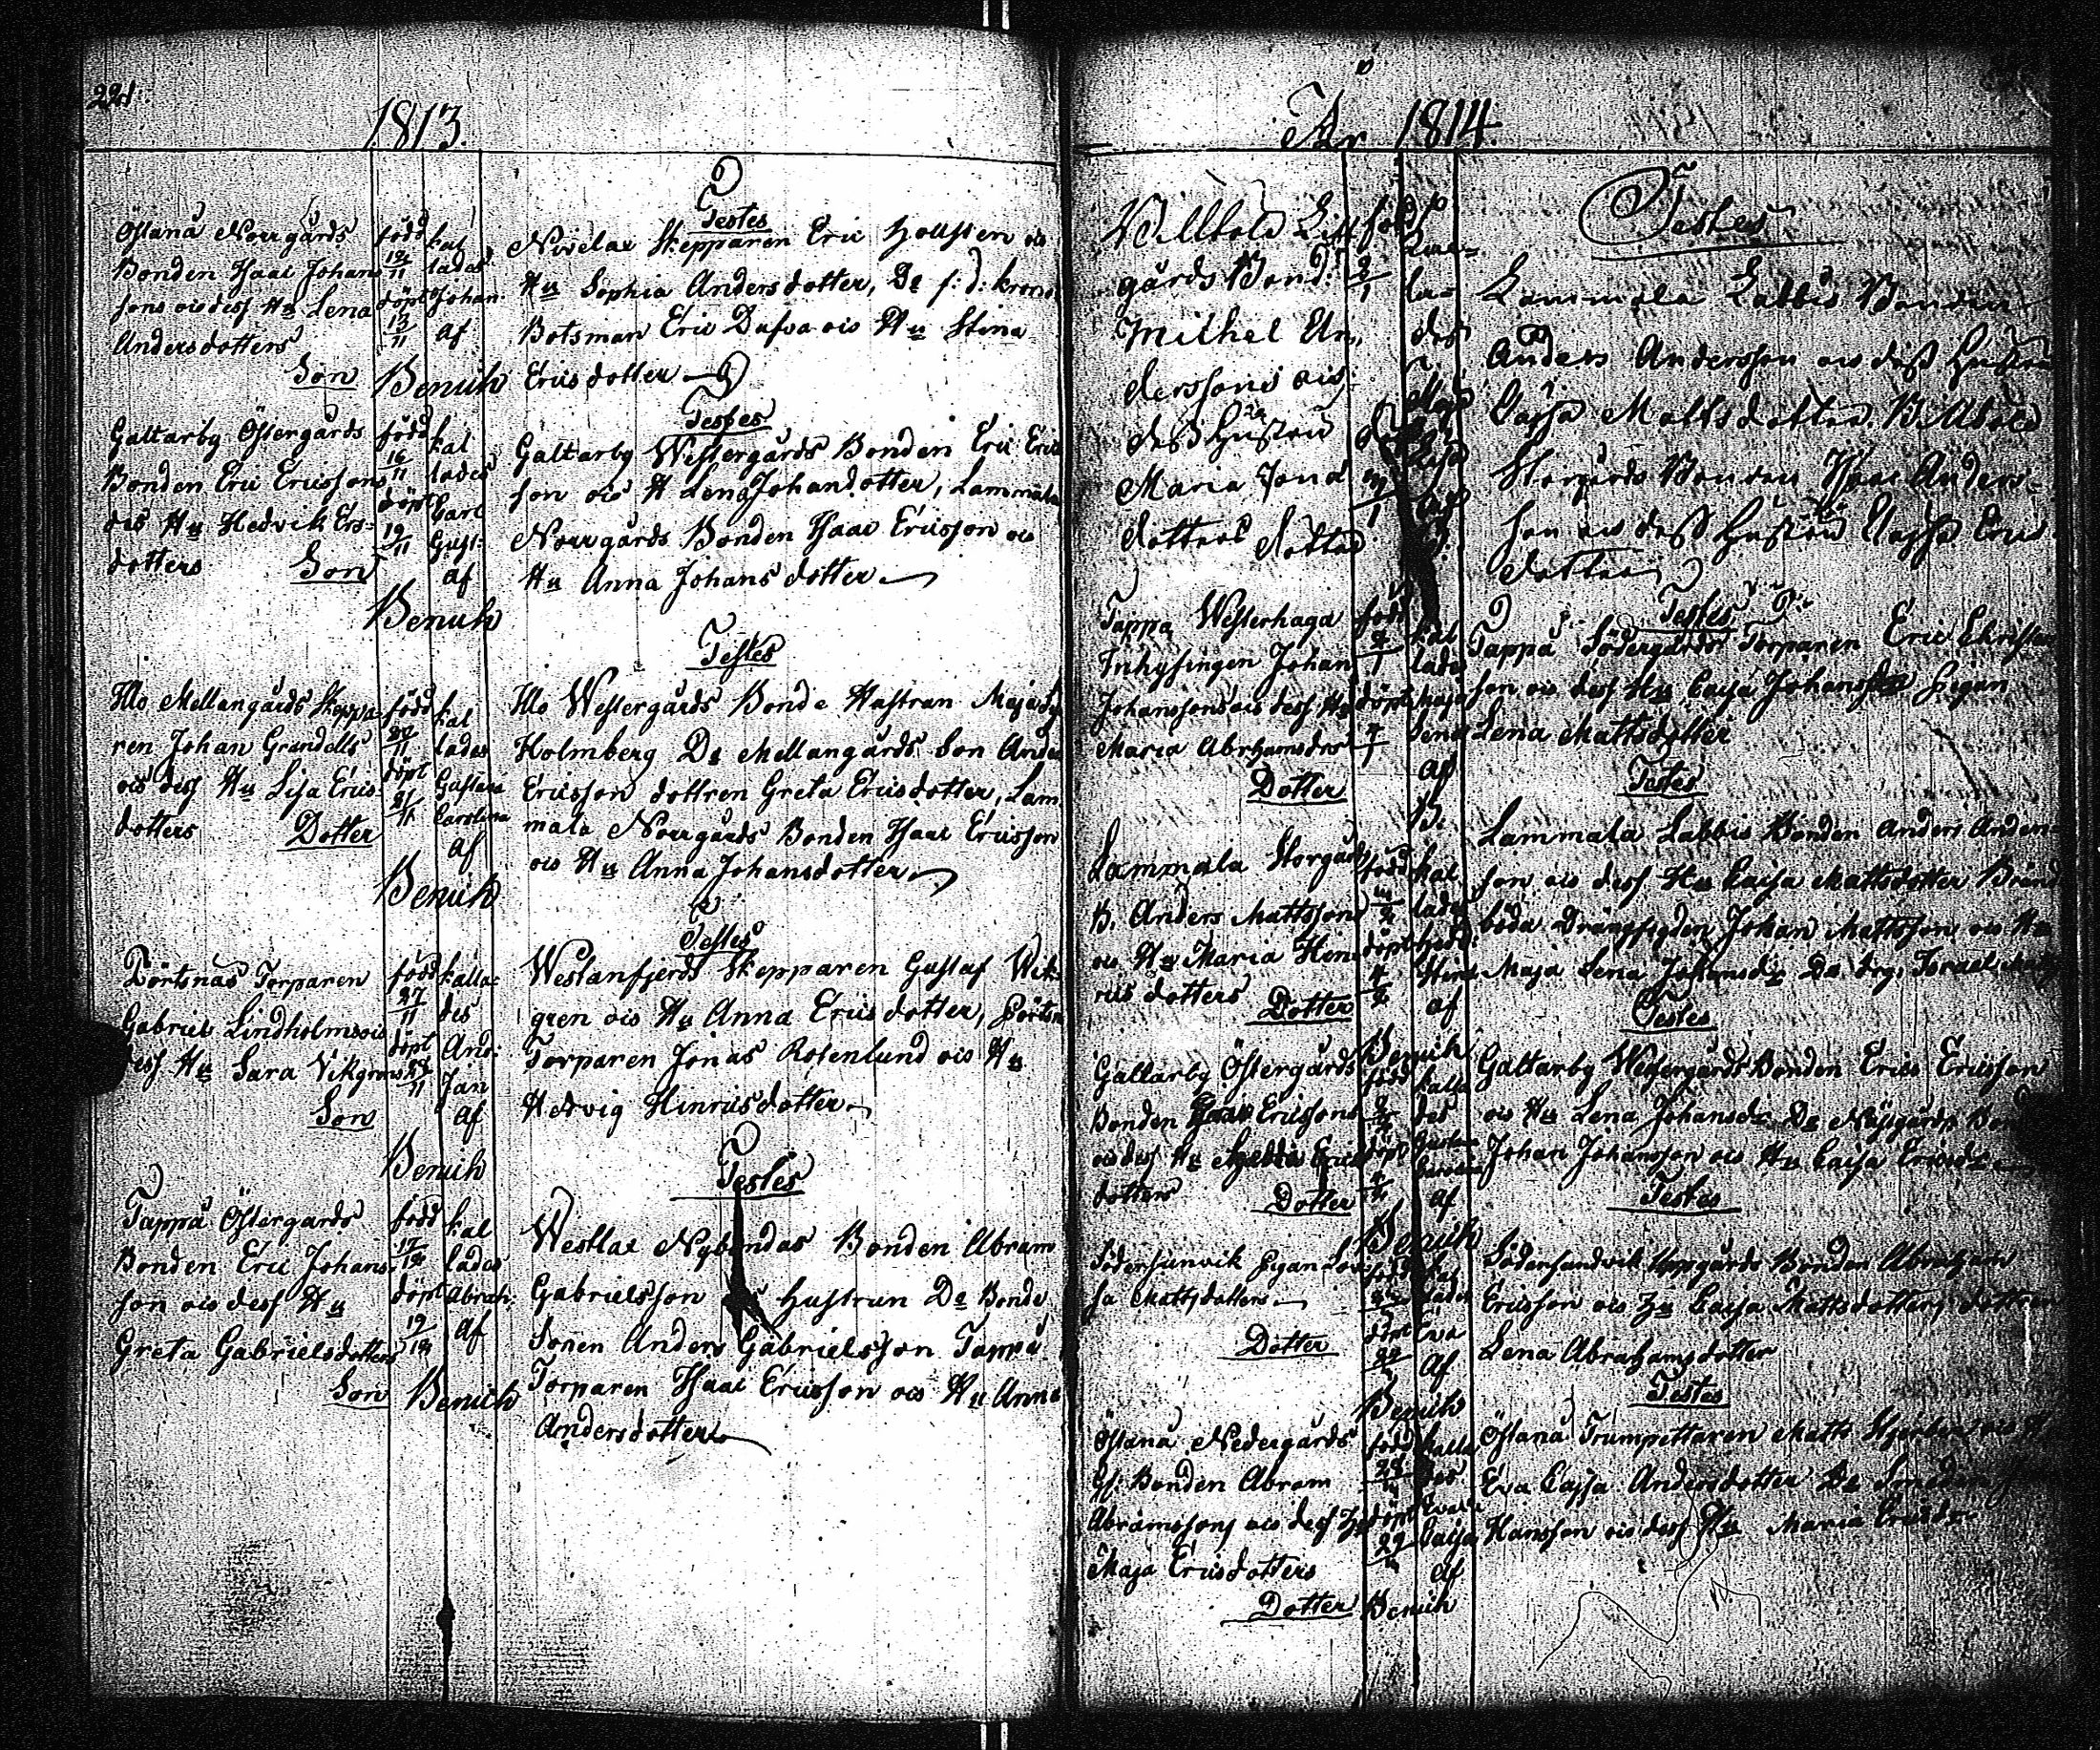 224.
1813.
Östanå Norrgårds
Bonden Isaac Johans
sons ocs dess Hu Lena
Andersdotters
Son
född
12/11
döpt
13/11
kal
lades
Johan:
af
Benuch
Testes
Nivelax Skepparen Eric Hollsten ocs
Hu Sophia Andersdotter, De f: d: krono
Botsman Eric Dufva ocs Hu Stina
Ericsdotter
Galtarby Östergårds
Bonden Eric Ericssons
des Hu Hedvik Ers=
dotters
Son
född
16/11
döpt
19/11
kal
lades
Carl
Gust:
af
Benuch
Testes
Galtarby Westergårds Bonden Eric Erics
son ocs H Lena Johansdotter, Lammala
Norrgårds Bonden Isaac Ericsson ocs
Hu Anna Johansdotter
Illo Mellangårds Skeppa=
ren Johan Grandells
ocs dess Hu Lisa Erics
dotters
Dotter
född
20/11
döpt
21/11
kal
lades
Gustava
Carolina
af
Benuch
Testes
Illo Westergårds Bonde Hustrun Maja
Holmberg De Mellangårds Son Ander
Ericsson dottren Greta Ericsdotter, Lam
mala Norrgårds Bonden Isaac Ericsson
ocs Hu Anna Johansdotter
Pörtsnäs Torparen
Gabriel Lindholms ocs
dess Hu Sara Vikgrens
Son
född
27/11
döpt
11
kalla=
des
And:
Jan
af
Benuch
Testes
Westanfjerds Skepparen Gustaf Wik=
gren ocs Hu Anna Ericsdotter, Pörtsn
Torparen Jonas Rosenlund ocs Hu
Hedvig Hinricsdotter
Tappå Östergårds
Bonden Eric Johans
son ocs dess Hu
Greta Gabrielsdotters
Son
född
17/12
döpt
19/12
kal
lades
Abrah:
af
Benuch
Testes
Westlax Nybondas Bonden Abram
Gabrielsson Hustrun De Bonde
Sonen Anders Gabrielsson Tappå
Torparen Isaac Ericsson ocs Hu Anna
Andersdotter
År 1814.
Lill
gårds Bond:
Michel An,
derssons ocs
dess Hustru
Maria Jons
dotters dotter
född
2/1
kal=
la=
des
Maja
Lisa
af
Testes
Lammala Labbis Bonden
Anders Andersson ocs dess Hustru
Cajsa Mattsdotter.
Storgårds Bonden Isaac Anders=
son ocs dess Hustru Cajsa Erics
dotter
Tappa Westerhaga
Inhysingen Johan
Johanssons ocs dess Hu
Maria Abrahamsdrs
Dotter
född
döpt
kal
lades
Maja
Lena
af
B:
Testes
Tappå Södergårds Torparen Eric Christer
son ocs dess Hu Cajsa Johansdr Pigan
Lena Mattsdotter
Lammala Storgårds
B. Anders Mattsson
ocs Hu Maria Hen
rics dotters
Dotter
född
döpt
kal
lades
Hedd:
Stina
af
Benuch
Testes
Lammala Labbis Bonden Anders Anders=
son ocs dess Hu Cajsa Mattsdotter Bränd
böda Drängen Johan Mattsson ocs Hu
Maja Lena Johansdr De drg: Israel
Galtarby Östergårds
Bonden Isaac Ericssons
ocs dess Hu Erics
dotters
Dotter
född
döpt
kalla
des
Gustava
Carolina
af
Benuch
Testes
Galtarby Westergårds Bonden Erics Ericsson
ocs Hu Lena Johansdr De Näsgårds Bon
Johan Johansson ocs Hu Cajsa Ericsdr
Södersunvik Pigan Lovi
sa Mattsdotters
Dotter
född
döpt
kal
lades
Eva
af
Benuch
Testes
Södersundvik Uppgårds Bonden Abraham
Ericsson ocs Hu Cajsa Mattsdotter, dottren
Lena Abrahamsdotter
Östanå Nedergårds
Bonden Abram
Abramssons ocs dess Hu
Maja Ericsdotters
Dotter
född
28
döpt
29
kalla
des
Eva
Cajsa
af
Benuch
Testes
Östanå Trumpettaren Matts Hjerberg ocs H
Eva Cajsa Andersdotter De Smeden
Hansson ocs dess Hu Maria Ericsdr